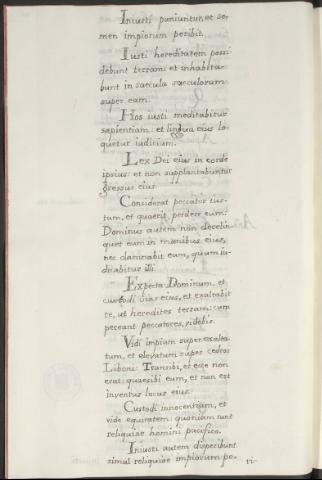 Iniusti punientur, et se-
men impiorum peribit.
Iusti hereditatem possi-
debunt terram: et inhabita-
bunt in sæcula sæculorum
super eam.
Hos iusti meditabitur
sapientiam: et lingua eius lo-
quetur iudicium.
Lex Dei eius in corde
ipsius: et non supplantabuntur
gressus eius.
Considerat peccator ius-
tum, et quaerit perdere eum:
Dominus autem non derelin-
quet eum in manibus eius,
nec damnabit eum, quum iu-
dicabitur illi.
Expecta Dominum, et
custodi vias eius, et exaltabit
te, ut heredites terram: cum
pereant peccatores, videbis.
Vidi impium super exalta-
tum, et elevatum super cedros
Libani: Transibi, et ecce non
erat: quaesibi eum, et non est
inventus locus eius.
Custodi innocentiam, et
vide equitatem: quoniam sunt
reliquiae homini pacifico.
Iniusti autem disperibunt
simul reliquiae impiorum pe-
ri-